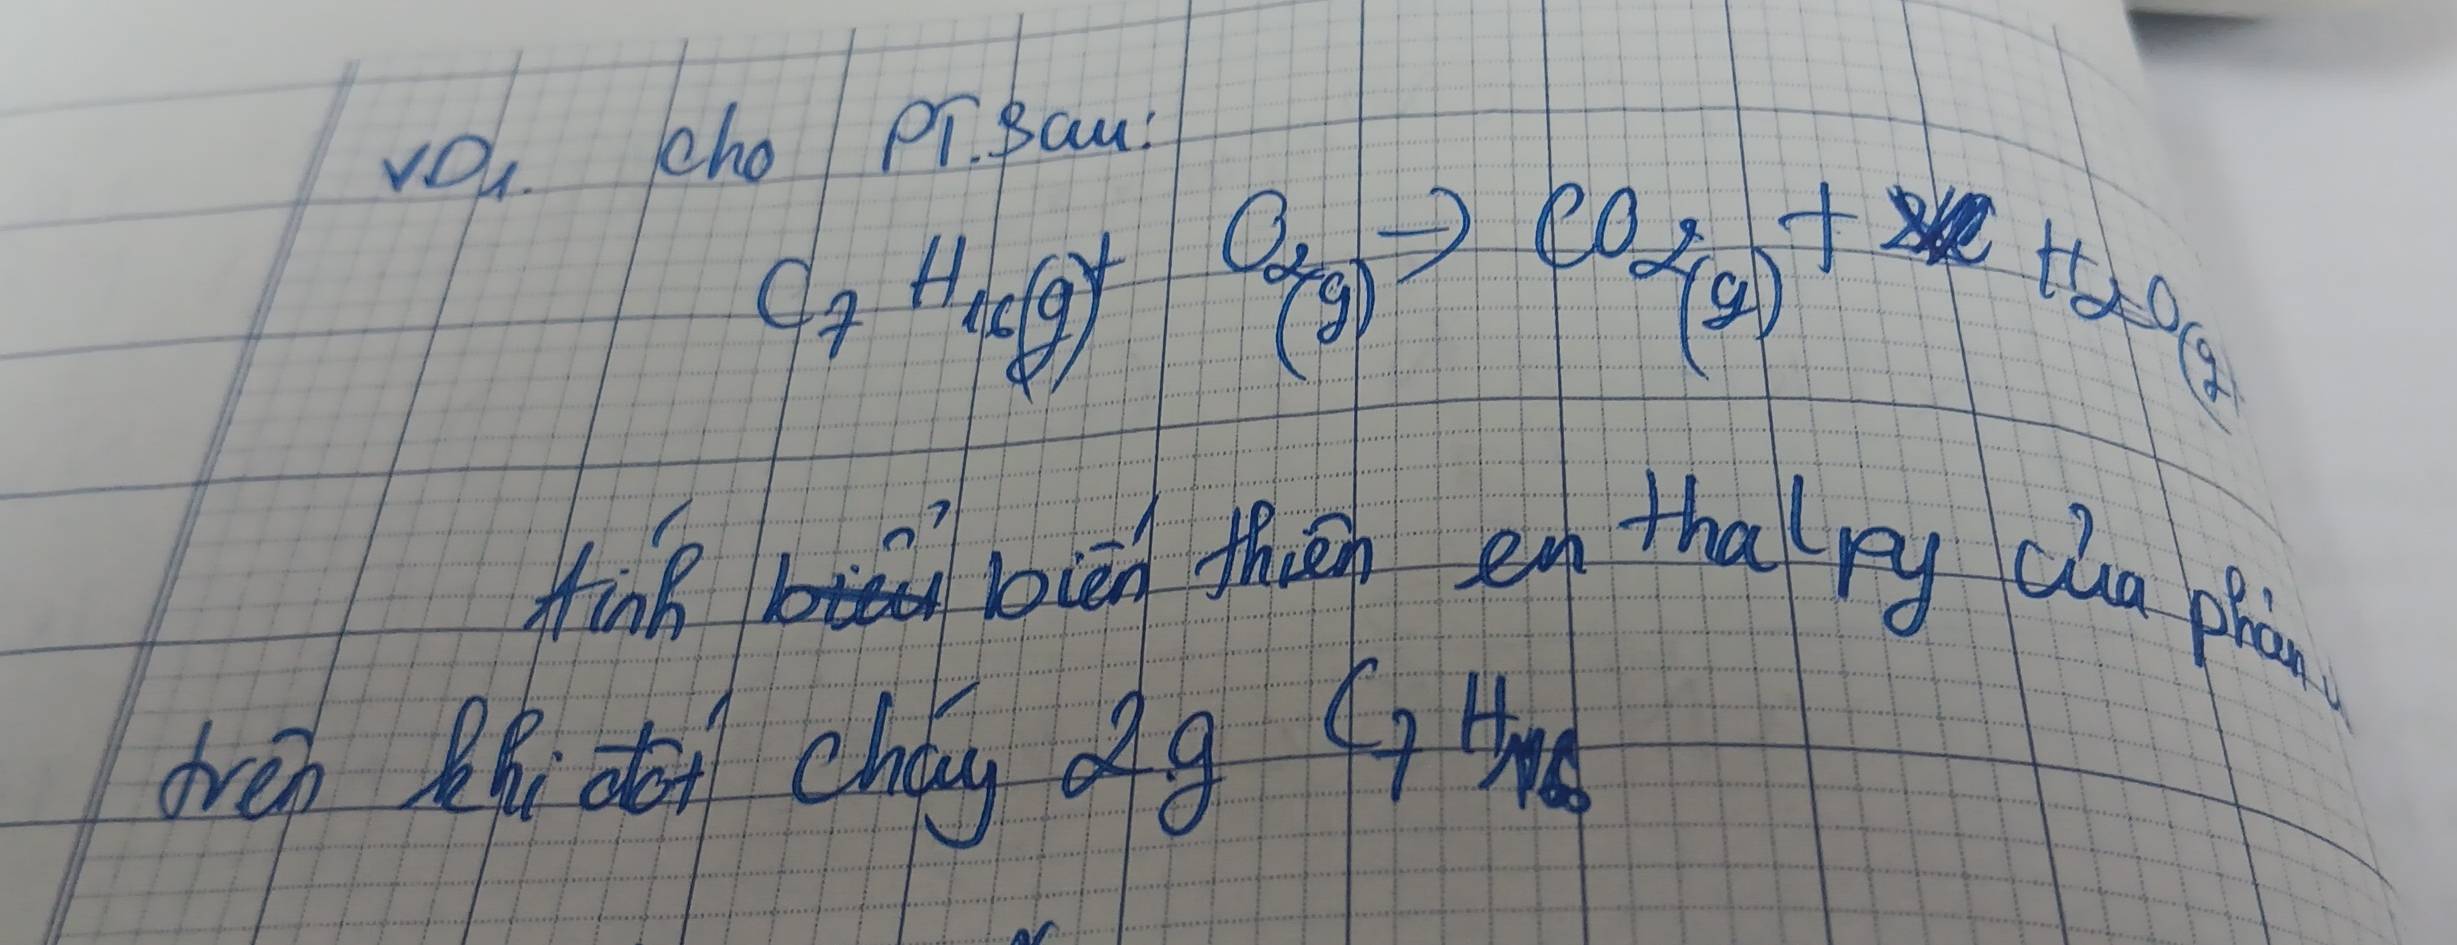 VD1. Cho PT.Sau:
C7 H16(g) + O2(g) → CO2(g) + H2O(g)
tính biểu biến thiên en thalpy của phản
trên khi đốt cháy 2g C7 H16